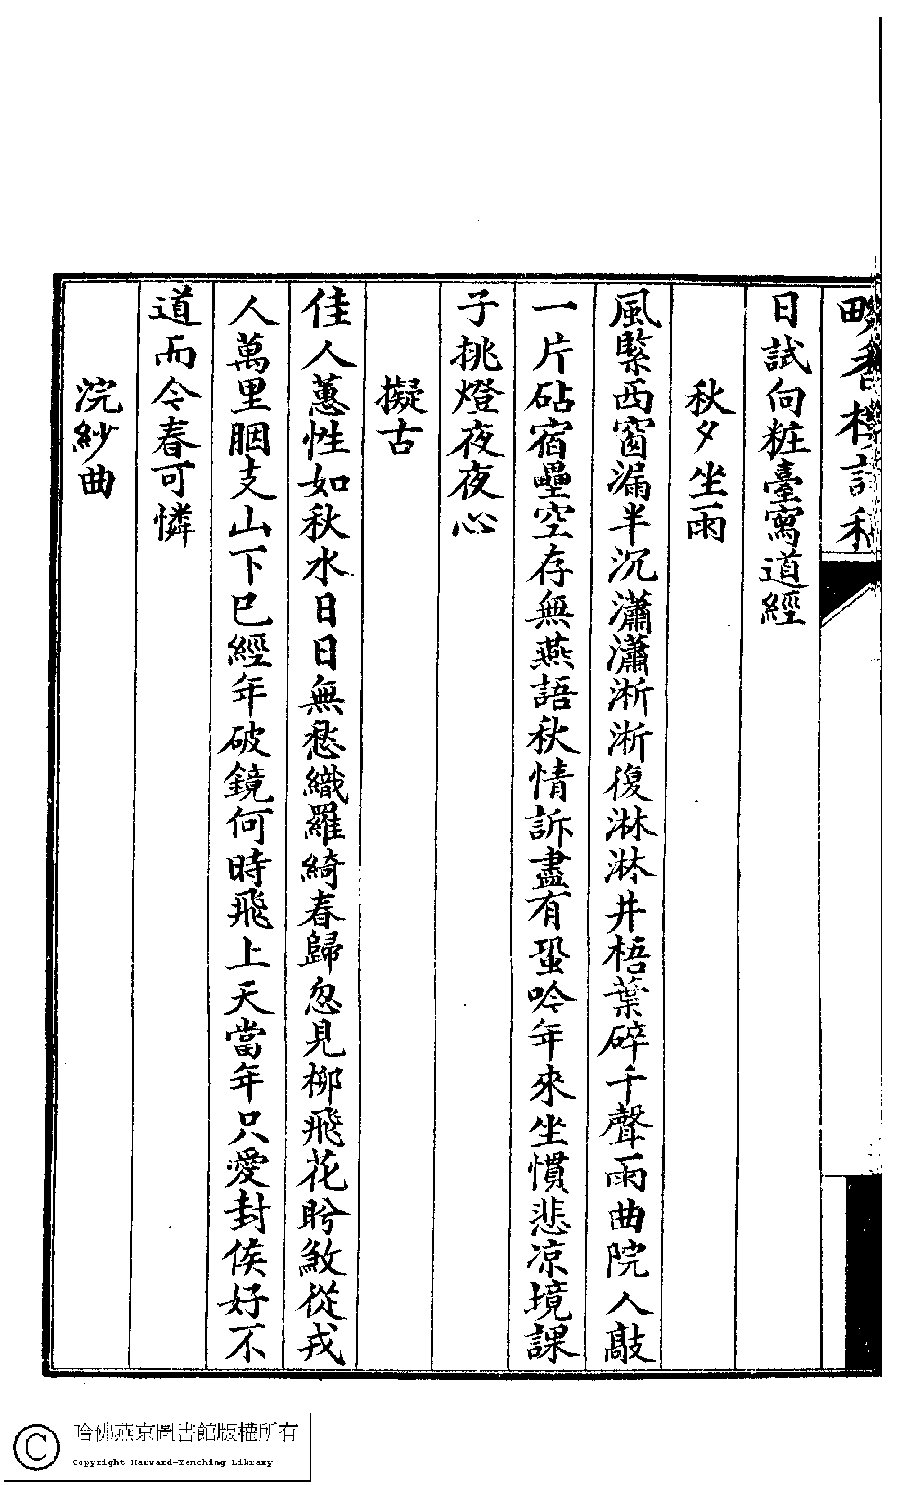 畹香樓詩稿
日試向粧臺寫道經
秋夕坐雨
風緊西窗漏半沉瀟瀟淅淅復淋淋井梧葉碎千聲雨曲院人敲
一片砧宿壘空存無燕語秋情訴盡有蛩吟年來坐慣悲凉境課
子挑燈夜夜心
擬古
佳人蕙性如秋水日日無愁織羅綺春歸忽見柳飛花盻煞從戎
人萬里胭支山下已經年破鏡何時飛上天當年只愛封侯好不
道而今春可憐
浣紗曲
哈佛燕京圖書館版權所有
Copyright Harvard-Yenching Library